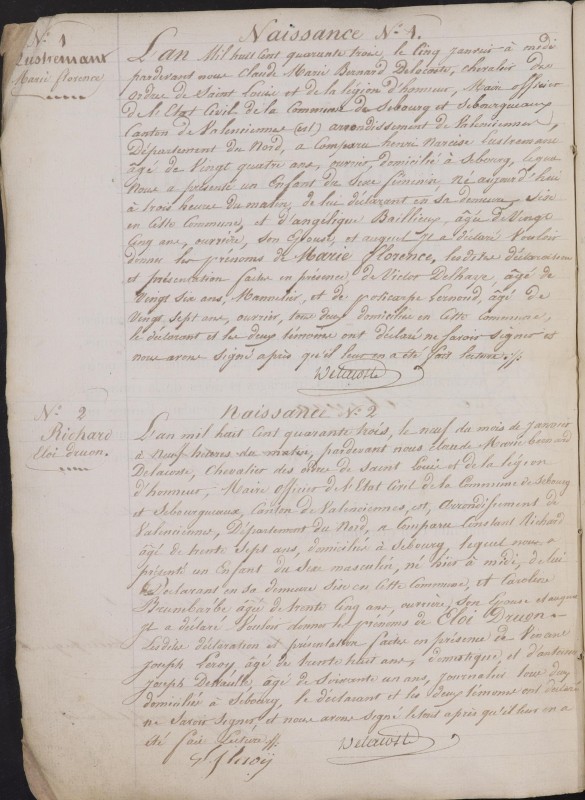 Naissance N.º 1.
N.º 1
Lustremant
Marie florence
L'an Mil huit Cent quarante trois, le Cinq janvier à midi
pardevant nous Claude Marie Bernard Delacoste, chevalier des
ordre de Saint Louis et de la légion d'honneur, Maire officier
de l'Etat Civil de la Commune de Sebourg et Sebourgueaux
Canton de Valenciennes (est) arrondissement de Valenciennes,
Département du Nord, a Comparu henri Narcisse Lustremant
âgé de Vingt quatre ans, ouvrier, domicilié à Sebourg, lequel
Nous a présenté un Enfant du Sexe féminin, né aujourd'hui
à trois heure du matin, de lui déclarant en sa demeure, sise
en Cette Commune, et d'angélique Baillieux, âgée de Vingt
Cinq ans, ouvrière, son Epouse, et auquel il a déclaré Vouloir
donner les prénoms de Marie florence, lesdites déclaration
et présentation faites en présence, de Victor Delhaye, âgé de
Vingt six ans, et de policarpe âgé de
Vingt sept ans, ouvrier, tous deux domiciliés en Cette Commune,
le déclarant et les deux témoins ont déclaré ne savoir signer et
nous avons signé après qu'il leur en a été fait lecture ./.
Delacoste
N.º 2
Richard
Eloi druon.
Naissance N.º 2
L'an mil huit Cent quarante trois, le neuf du mois de janvier
à neuf heures du matin, pardevant nous claude Marie bernard
Delacoste, Chevalier des ordre de Saint Louis et de la légion
d'honneur, Maire officier de l'Etat Civil de la Commune de Sebourg
et Sebourgueaux, Canton de Valenciennes, est, Arrondissement de
Valenciennes, Département du Nord, a Comparu Constant Richard
âgé de trente Sept ans, domicilié à Sebourg, lequel nous a
présenté un Enfant du Sexe masculin, né hier à midi, de lui
Déclarant en sa demeure Sise en Cette Commune, et Caroline
Brunebarbe âgée de trente Cinq ans, ouvrière, son Epouse et auquel
il a déclaré Vouloir donner le prénoms de Eloi Druon.
Lesdites déclaration et présentation faites en présence de
Joseph Leroy, âgé de trente huit ans, domestique et d'antoine
Joseph âgé de Soixante un ans, journalier tous deux
domiciliés à Sebourg, le déclarant et les deux témoins ont déclaré
ne savoir Signer, et nous avons signé le tout après qu'il leur en a
été fait Lecture ./.
Delacoste
leroy